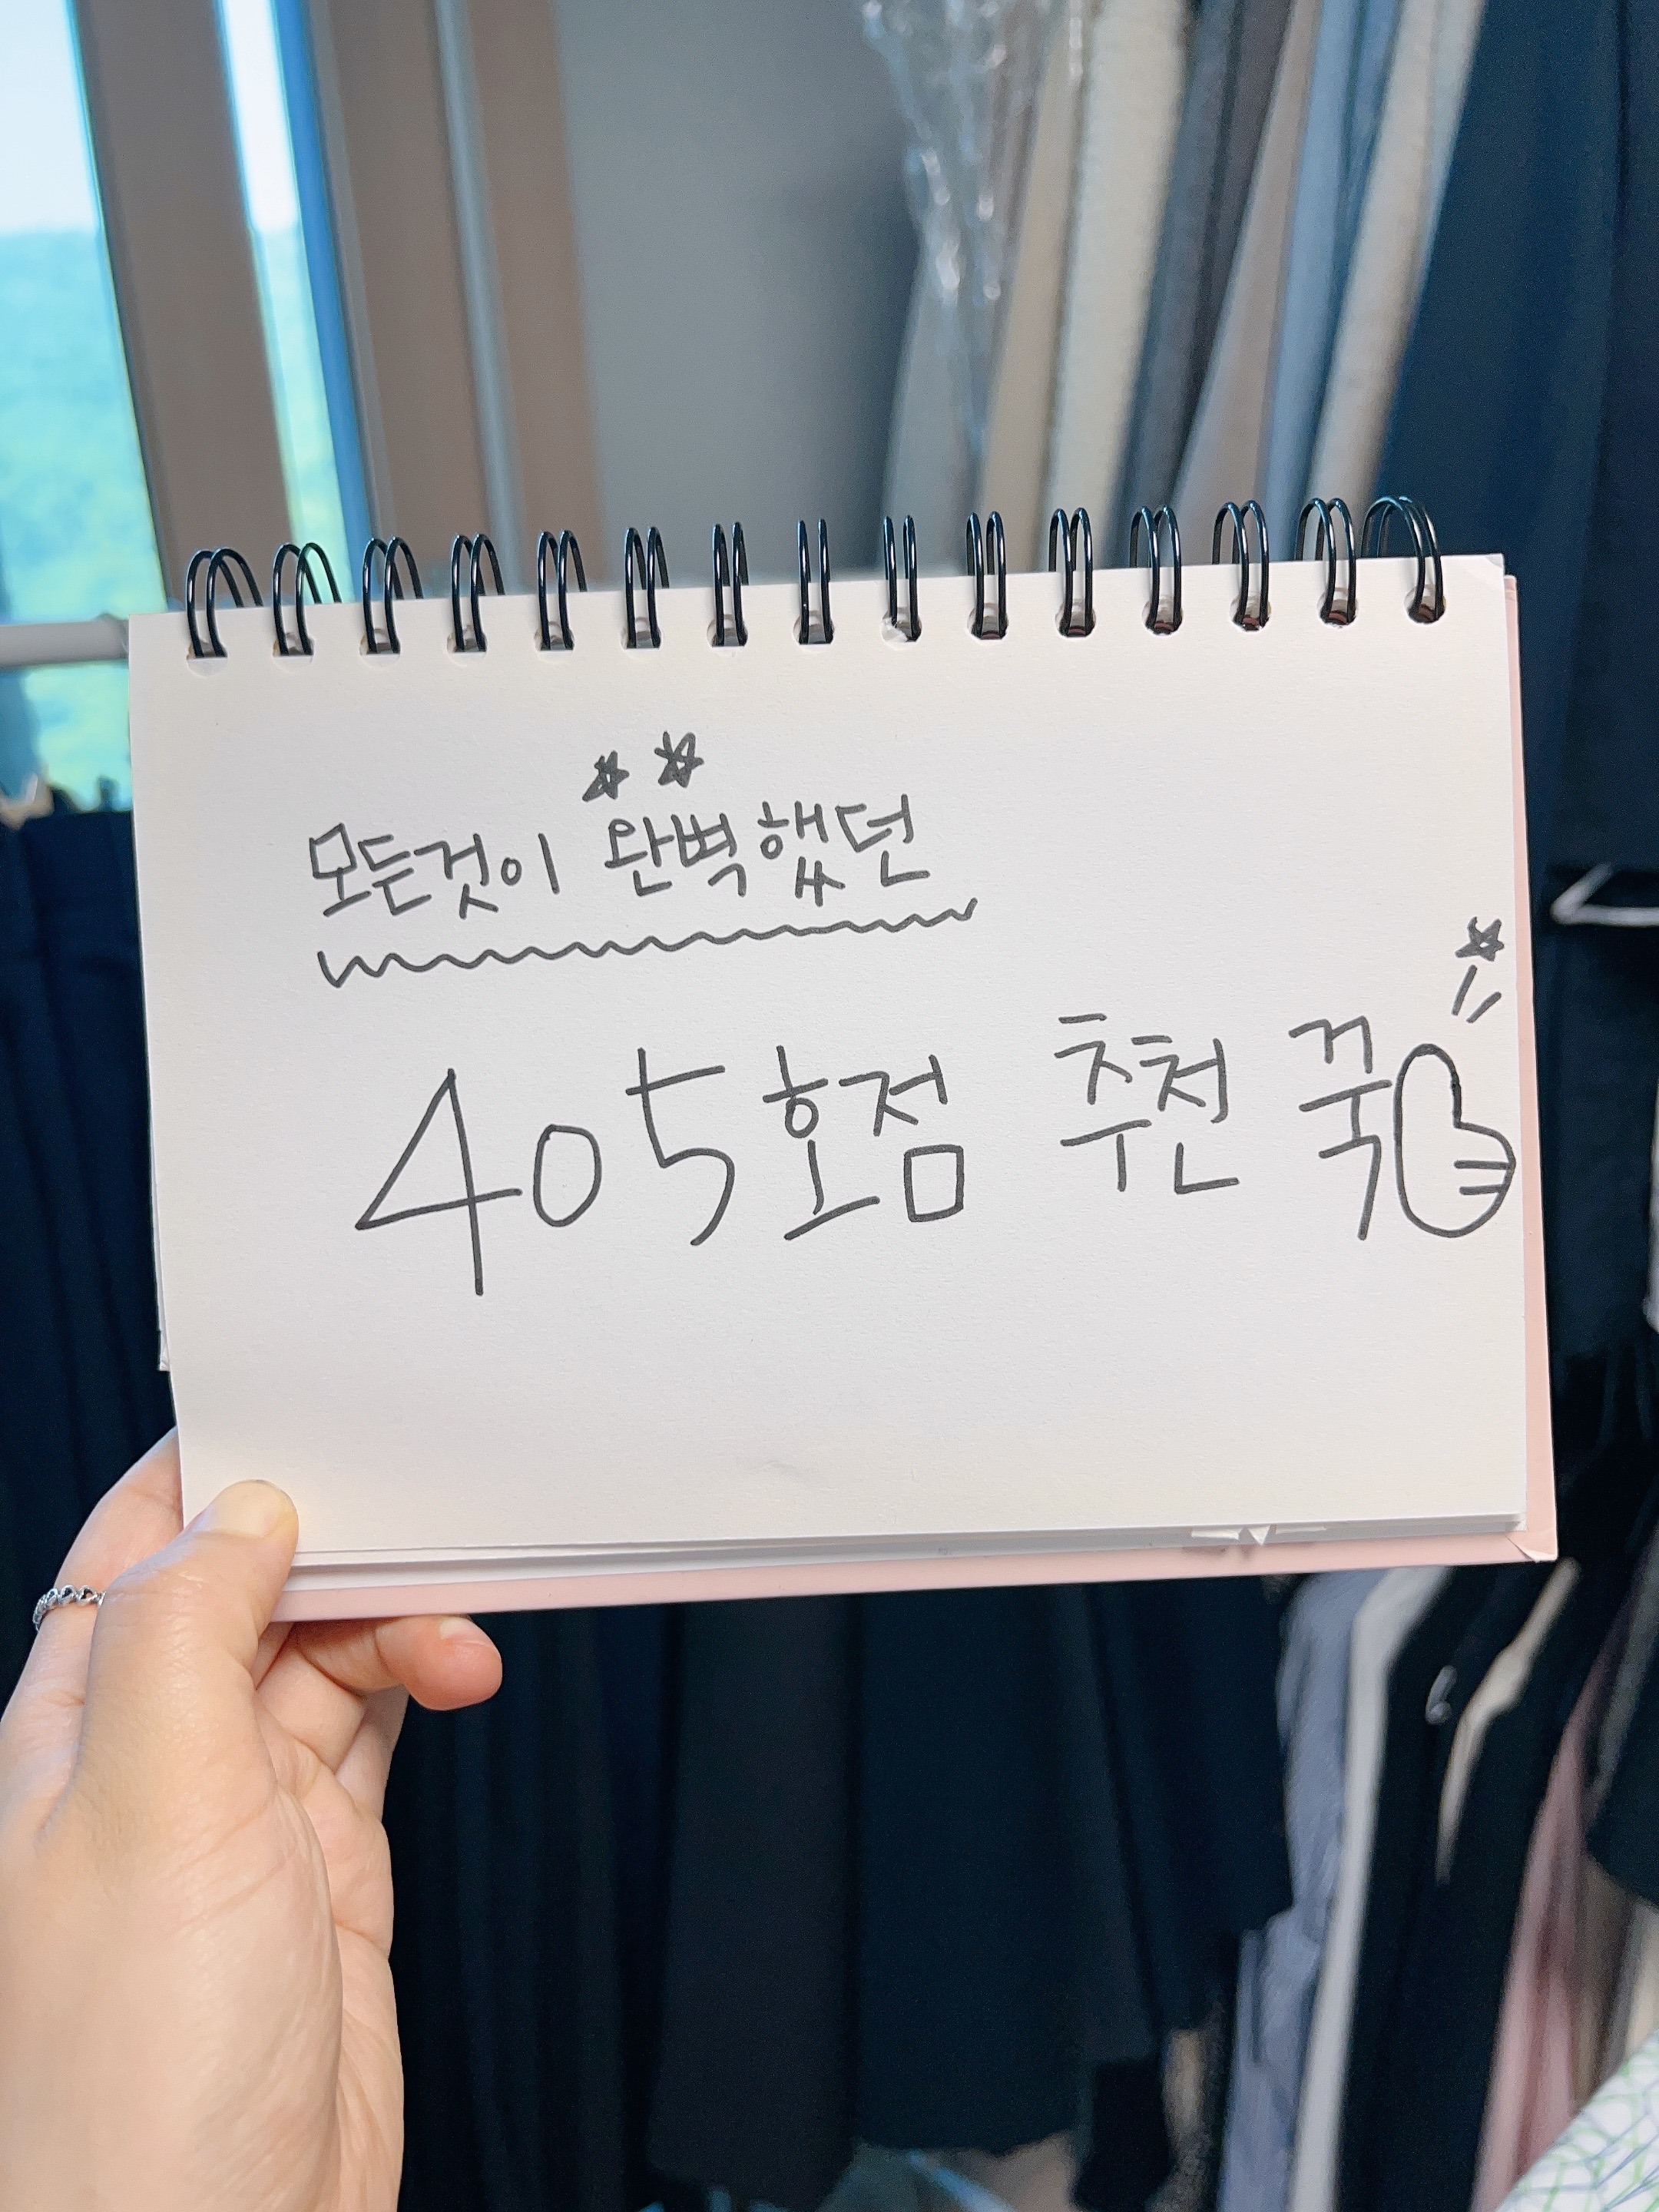 모든것이 완벽했던
405호점 추천 꾹